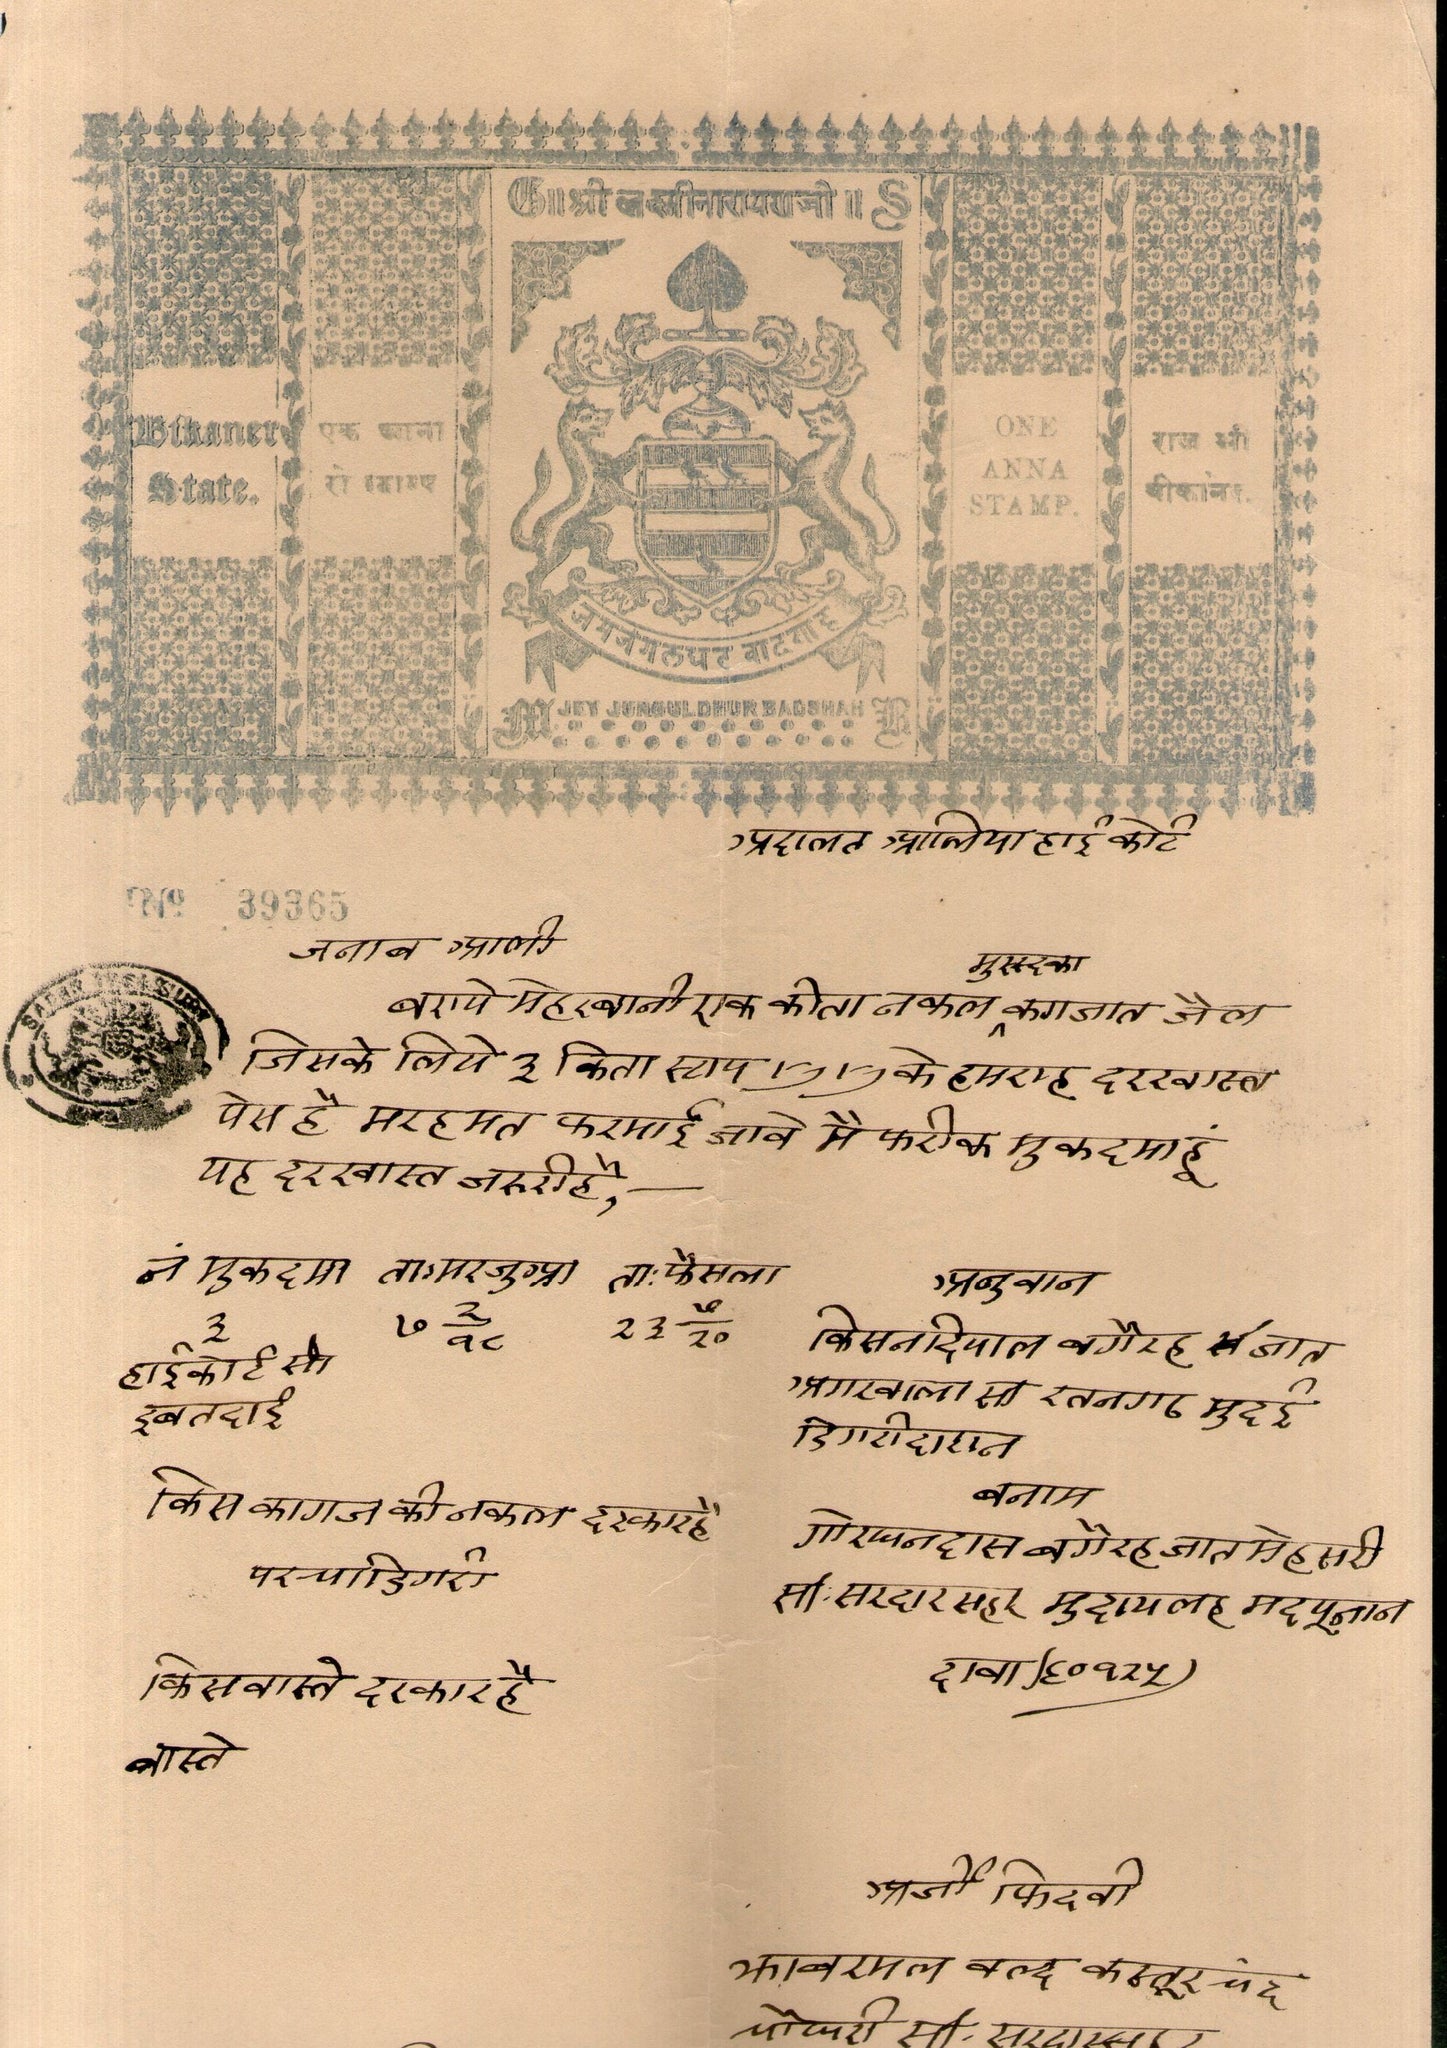 ॥ श्री लक्ष्मीनारायणजी ॥
Bikaner State.
एक आना रो स्टाम्प
ONE ANNA STAMP.
राज श्री बीकानेर.
जयजंगलधर बादशाह
JEY JUNGUL DHUR BADSHAH
अदालत आलिया हाई कोर्ट
No 39365
जनाब आली
मुसदका
बराये मेहरबानी एक कीता नकल कागजात जैल
जिसके लिये ३ किता स्टाप के हमराह दरखास्त
पेस है मरहमत फरमाई जावे मै फरीक मुकदमा हूं
यह दरखास्त जरुरी है,—
नं मुकदमा ता:मरजुआ ता:फैसला
३ ७ २/१८ २३ /२०
हाईकोर्ट सी
इबतदाई
अनुवान
किसनदियाल बगैरह जात
अगरवाला सा रतनगढ मुदई
डिगरीदारान
बनाम
गोरधनदास बगैरह जात मेहसरी
सा: सरदारसहर मुदायलह मदयूनान
दावा ६०१२५)
किस कागज की नकल दरकार है
परचा डिगरी
किस वास्ते दरकार है
वास्ते
अर्जी फिदवी
झाबरमल वल्द कस्तूरचंद
चोधरी सा: सरदारसहर